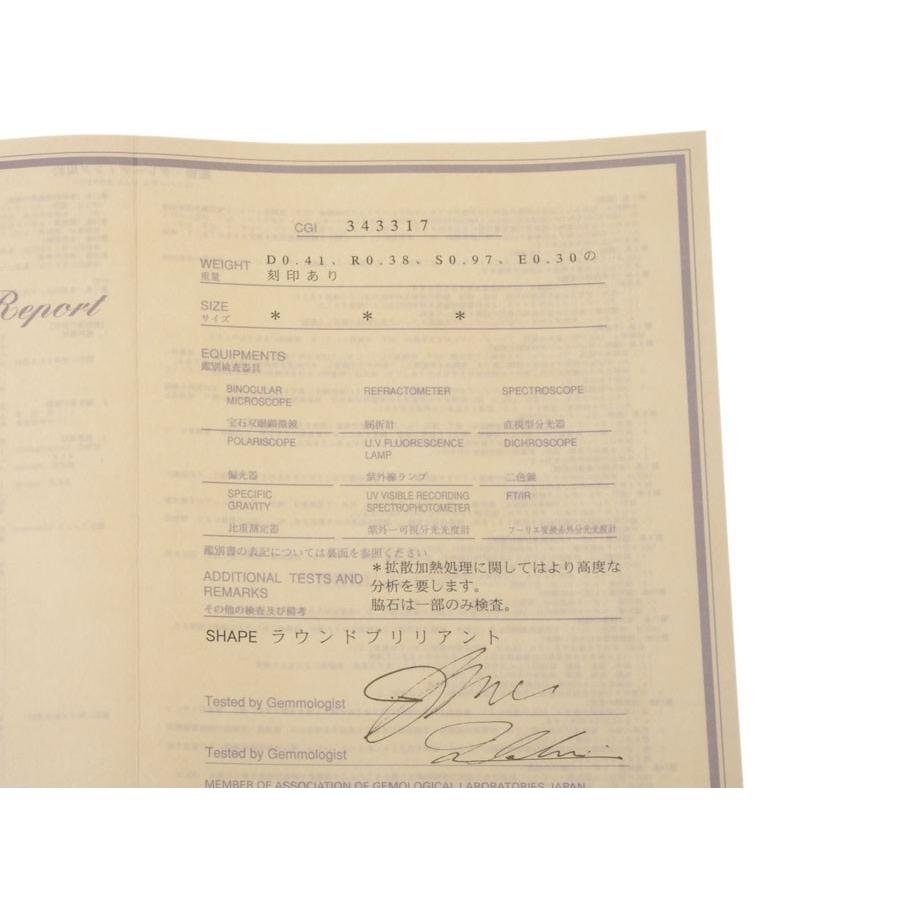 Report
CGI 343317
WEIGHT D0.41、R0.38、S0.97、E0.30の
重量 刻印あり
SIZE
サイズ * * *
EQUIPMENTS
鑑別検査器具
BINOCULAR MICROSCOPE REFRACTOMETER SPECTROSCOPE
宝石双眼顕微鏡 屈折計 直視型分光器
POLARISCOPE U.V FLUORESCENCE LAMP DICHROSCOPE
偏光器 紫外線ランプ 二色鏡
SPECIFIC GRAVITY UV VISIBLE RECORDING SPECTROPHOTOMETER FT/IR
比重測定器 紫外一可視分光光度計 フーリエ変換赤外分光光度計
鑑別書の表記については裏面を参照ください
ADDITIONAL TESTS AND REMARKS
その他の検査及び備考
*拡散加熱処理に関してはより高度な
分析を要します。
脇石は一部のみ検査。
SHAPE ラウンドブリリアント
Tested by Gemmologist
Tested by Gemmologist
MEMBER OF ASSOCIATION OF GEMOLOGICAL LABORATORIES JAPAN